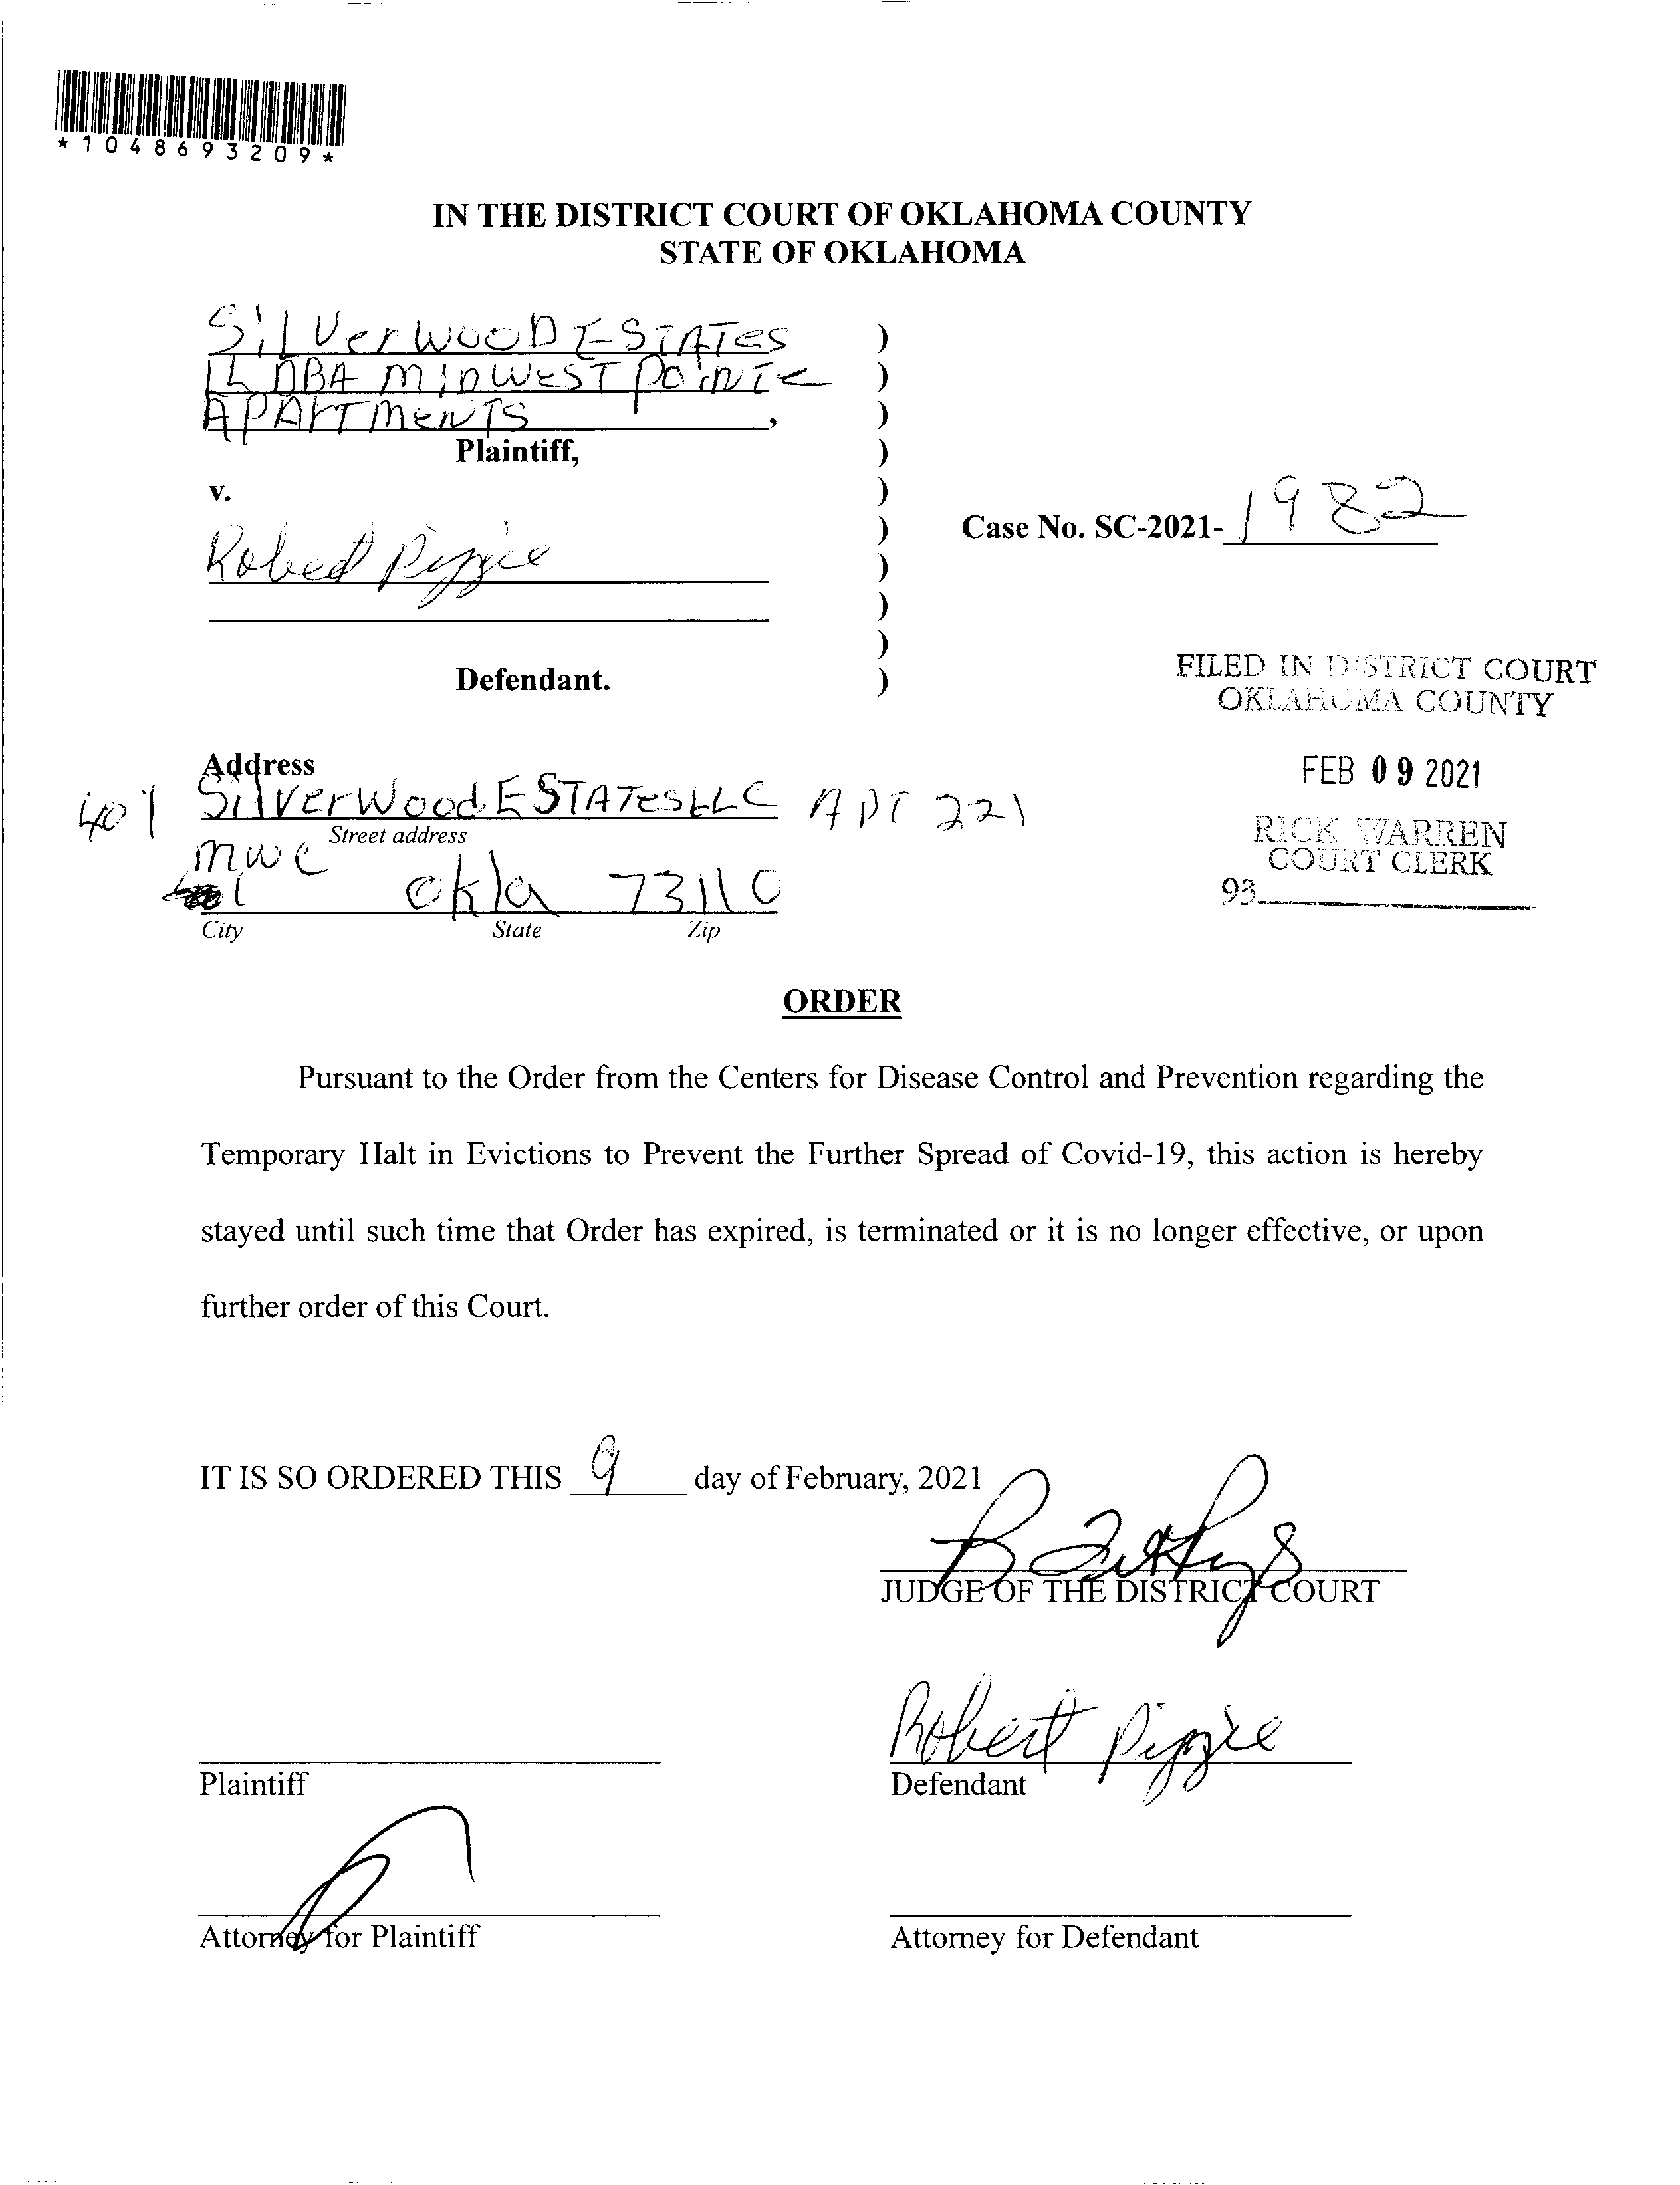 *1048693209*
IN THE DISTRICT COURT OF OKLAHOMA COUNTY
STATE OF OKLAHOMA
SilverwooD ESTATes )
DBA MiDWEST PoiNTe )
APArTMeNTS , )
Plaintiff, )
v. )
Case No. SC-2021-1982 )
Robert )
)
)
)
Defendant. )
FILED IN DISTRICT COURT
OKLAHOMA COUNTY
FEB 09 2021
RICK WARREN
COURT CLERK
93
Address
401 SilverWood ESTATesLLC APT 221
Street address
mwc okla 73110
City State Zip
ORDER
Pursuant to the Order from the Centers for Disease Control and Prevention regarding the
Temporary Halt in Evictions to Prevent the Further Spread of Covid-19, this action is hereby
stayed until such time that Order has expired, is terminated or it is no longer effective, or upon
further order of this Court.
IT IS SO ORDERED THIS 9 day of February, 2021
JUDGE OF THE DISTRICT COURT
Robert
Plaintiff Defendant
Attorney for Plaintiff Attorney for Defendant